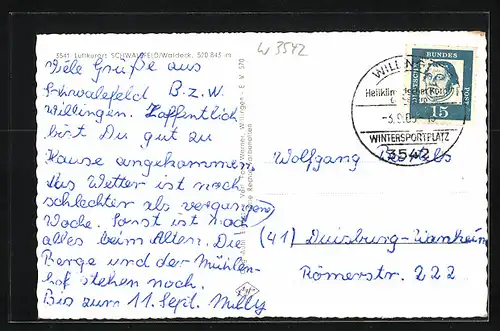 3541 Luftkurort SCHWALEFELD/Waldeck, 520 843 m
W 3542
Viele Grüße aus
Schwalefeld B.z.w.
Willingen. Hoffentlich
bist Du gut zu
Hause angekommen,
das Wetter ist noch
schlechter als vergangene
Woche. Sonst ist noch
alles beim Alten. Die
Berge und der Mühlen-
hof stehen noch.
Bis zum 11. Sept. Milly
WILLINGEN
Heilklimatischer Kurort
WINTERSPORTPLATZ
3542
DEUTSCHE BUNDES POST
15
Wolfgang
(41) Duisburg-Wanheim
Römerstr. 222